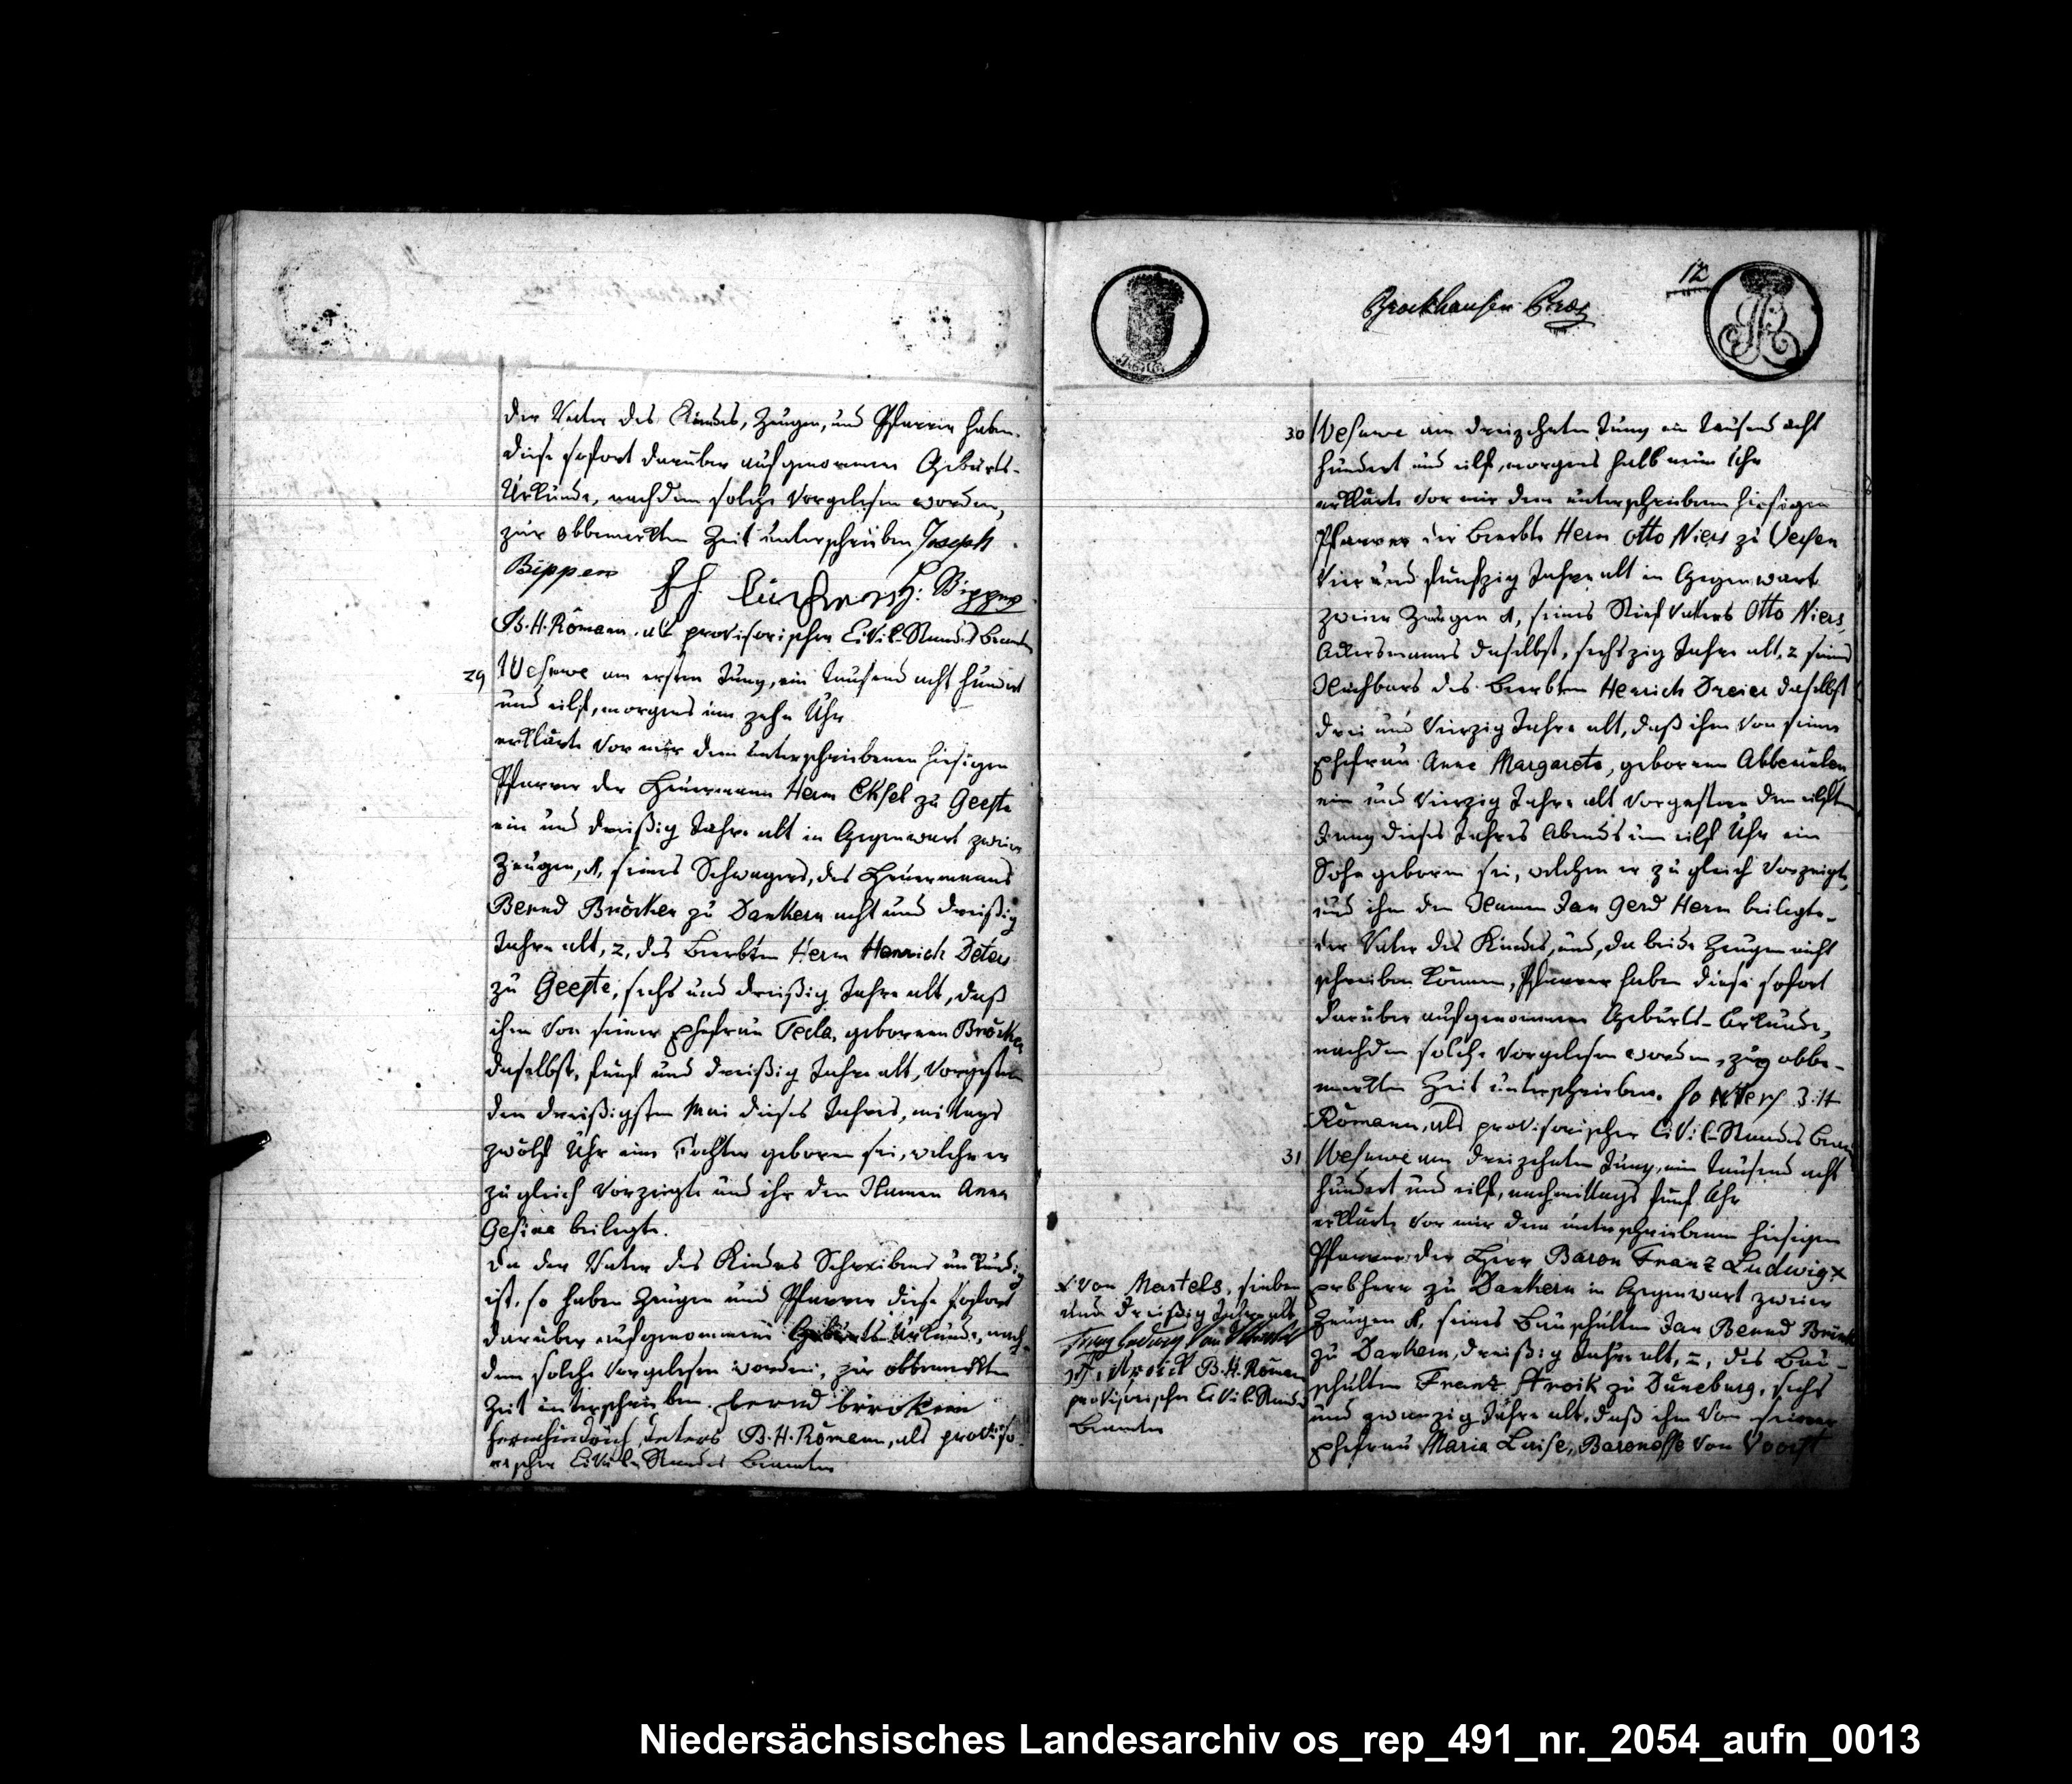 der Vater des Kindes, Zeugen, und Pfarrer haben
diese sofort darüber aufgenommene Geburts-
Urkunde, nachdem solche vorgelesen worden,
zur obbemerkten Zeit unterschrieben, Joseph
Bippen H: Bippen
B. H. Römann, als provisorischer Civil-Standes Beamter
29 Wesuwe am ersten Juny, ein Tausend acht hundert
und eilf, morgens um zehn Uhr
erklärte vor mir dem unterschriebenen hiesigen
Pfarrer der Heuermann Herm Eksel zu Geeste
ein und dreißig Jahre alt in Gegenwart zweier
Zeugen, 1, seines Schwagers, des Heuermanns
Bernd Bröcker zu Dankern acht und dreißig
Jahre alt, 2, des Beerbten Herm Henrich Deters
zu Geeste, sechs und dreißig Jahre alt, daß
ihm von seiner Ehefrau Tecla, gebornen Bröcker
daselbst, fünf und dreißig Jahre alt, vorgestern
den dreißigsten Mai dieses Jahres, mittags
zwölf Uhr eine Tochter geboren sei, welche er
zugleich vorzeigte und ihr den Namen Anna
Gesina beilegte.
Da der Vater des Kindes Schreibens unkundig
ist, so haben Zeugen und Pfarrer diese sofort
darüber aufgenommene Geburts-Urkunde, nach-
dem solche vorgelesen worden, zur obbemerkten
Zeit unterschrieben. bernd bröker
hermhindrich Deters B. H. Römann, als proviso-
rischer Civil-Standes Beamter
12
Brockhauser Präs
30 Wesuwe am dreizehnten Juny ein Tausend acht
hundert und eilf, morgens halb neun Uhr
erklärte vor mir dem unterschriebenen hiesigen
Pfarrer der Beerbte Herm Otto Niers zu Versen
vier und fünfzig Jahre alt in Gegenwart
zweier Zeugen 1, seines Stiefvaters Otto Niers,
Ackersmanns daselbst, sechszig Jahre alt, 2 seines
Nachbars des Beerbten Henrich Dreier daselbst
drei und vierzig Jahre alt, daß ihm von seiner
Ehefrau Anna Margareta, gebornen Abbeculen
ein und vierzig Jahre alt vorgestern den eilften
Juny dieses Jahres Abends um eilf Uhr ein
Sohn geboren sei, welchen er zugleich vorzeigte,
und ihm den Namen Jan Gerd Herm beilegte.
der Vater des Kindes, und, da beide Zeugen nicht
schreiben können, Pfarrer haben diese sofort
darüber aufgenommene Geburts-Urkunde,
nachdem solche vorgelesen worden, zur obbe-
merkten Zeit unterschrieben. B. H
Römann, als provisorischer Civil-Standes Beamter
31 Wesuwe am dreizehnten Juny, ein Tausend acht
hundert und eilf, nachmittags fünf Uhr
erklärte vor mir dem unterschriebenen hiesigen
Pfarrer der Herr Baron Franz Ludwig x
Erbherr zu Dankern in Gegenwart zweier
Zeugen 1, seines Bauschulten Jan Bernd
zu Dankern, dreißig Jahre alt, 2, des Bau-
schulten Franz Stroik zu Düneburg, sechs
und zwanzig Jahre alt, daß ihm von seiner
Ehefrau Maria Luise, Baronesse von Voorst
x von Martels, sieben
und dreißig Jahre alt
Franz Ludwig Von Martels
B. H. Römann
provisorischer Civil-Standes
Beamter
Niedersächsisches Landesarchiv os_rep_491_nr._2054_aufn_0013